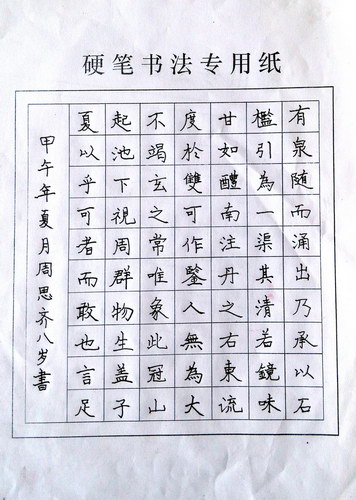 硬笔书法专用纸
有泉随而涌出乃承以石
檻引為一渠其清若鏡味
甘如醴南注丹之右東流
度於雙可作鑒人無為大
不竭玄之常唯象此冠山
起池下視周群物生盖子
夏以乎可者而敢也言足
甲午年夏月周思齐八岁書